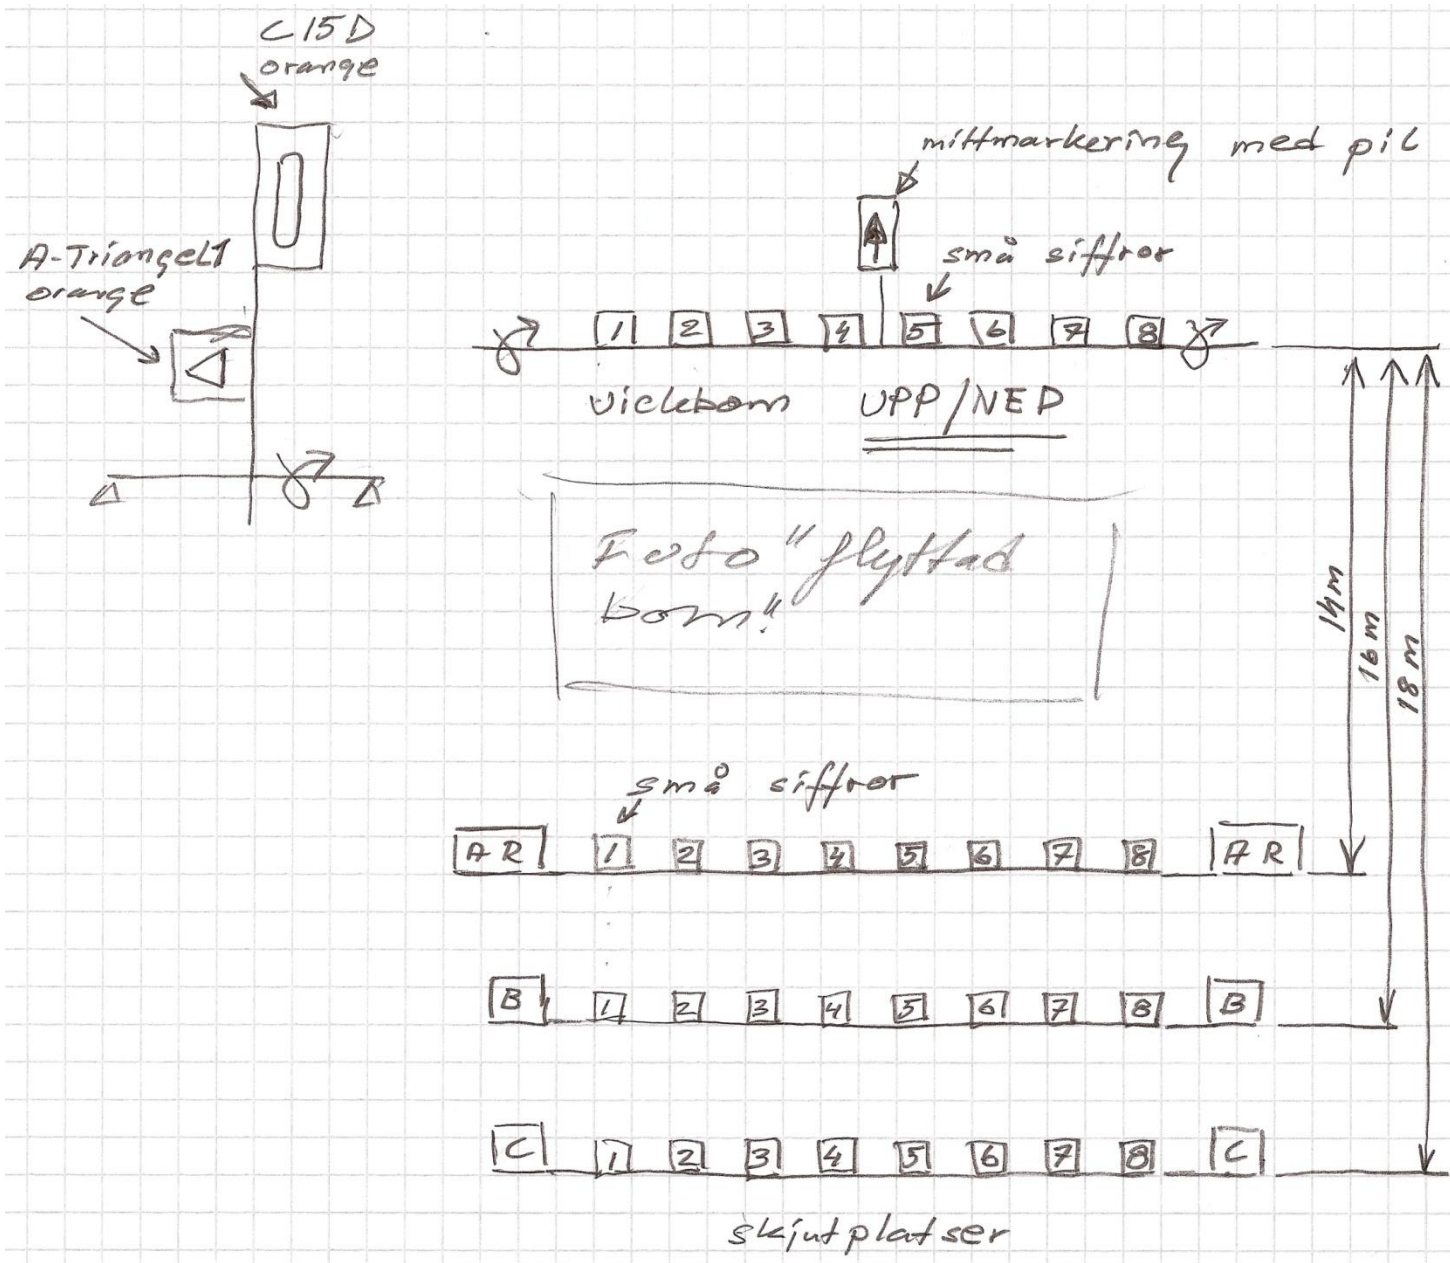 C15D
orange
mittmarkering med pil
A-Triangel1
orange
små siffror
1 2 3 4 5 6 7 8
vickbom UPP/NED
Foto "flyttad
bom"
14m
16m
18m
små siffror
AR 1 2 3 4 5 6 7 8 AR
B 1 2 3 4 5 6 7 8 B
C 1 2 3 4 5 6 7 8 C
skjutplatser